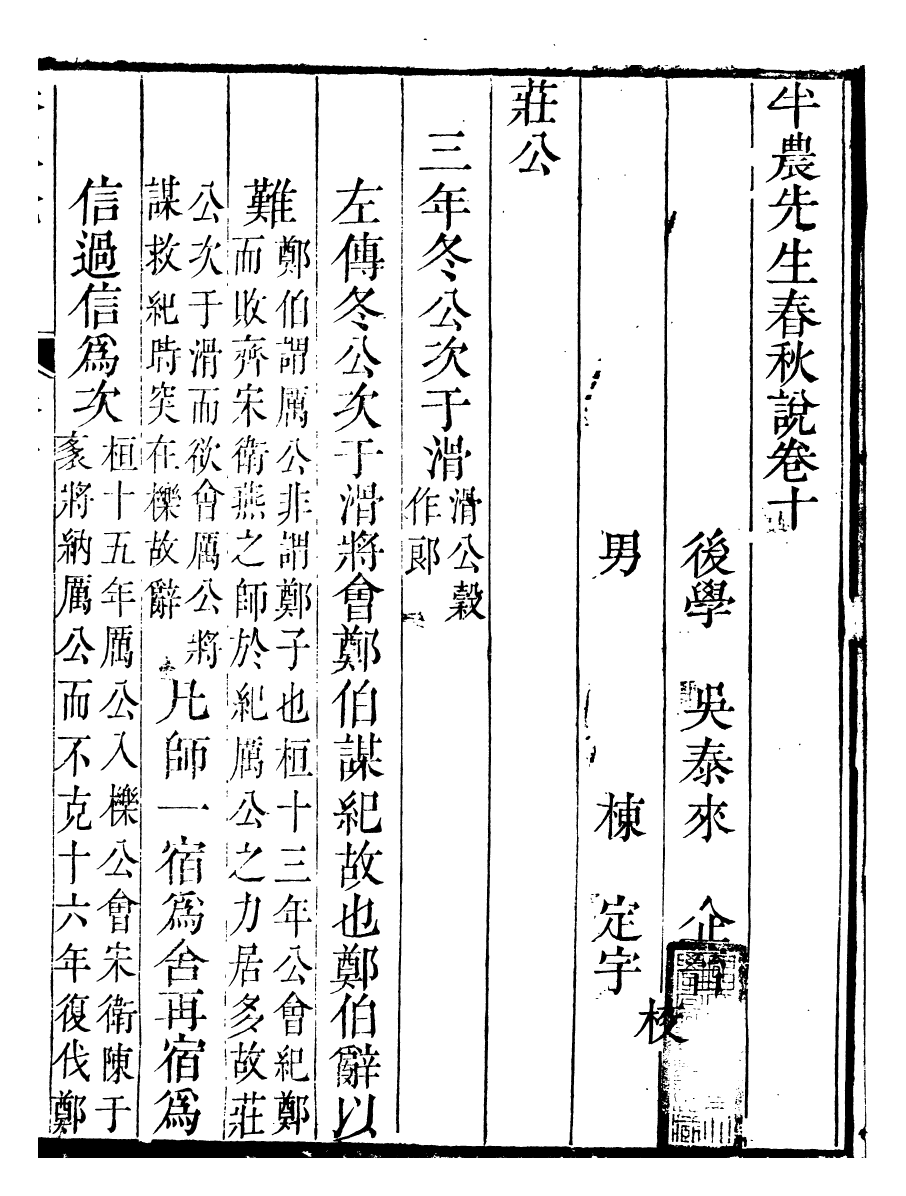 半農先生春秋說卷十
後學 吳泰來 企晉
男 棟 定宇 校
莊公
三年冬公次于滑滑公穀作郎
左傳冬公次于滑將會鄭伯謀紀故也鄭伯辭以
難鄭伯謂厲公非謂鄭子也桓十三年公會紀鄭而敗齊宋衛燕之師於紀厲公之力居多故莊
公次于滑而欲會厲公將謀救紀時突在櫟故辭凡師一宿爲舍再宿爲
信過信爲次桓十五年厲公入櫟公會宋衛陳于袲將納厲公而不克十六年復伐鄭